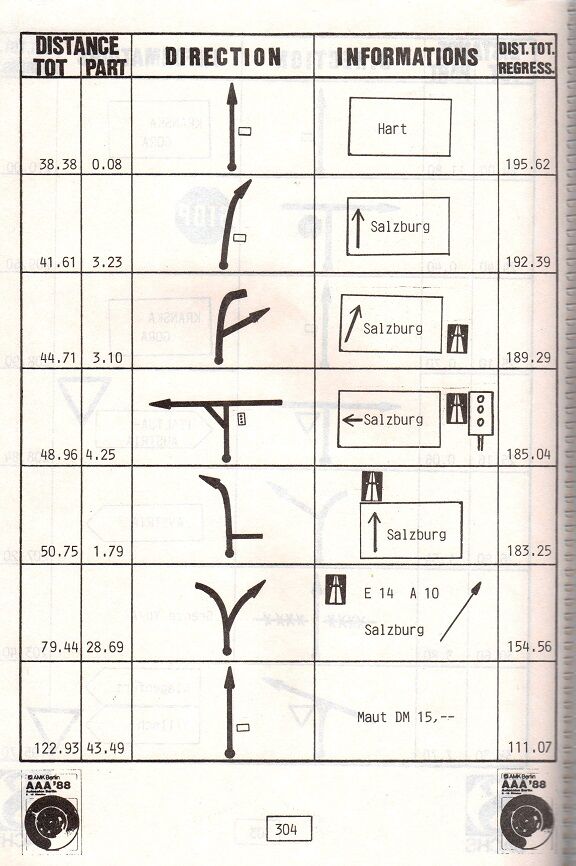 DISTANCE
TOT PART
DIRECTION
INFORMATIONS
DIST.TOT.
REGRESS.
38.38 0.08 Hart 195.62
41.61 3.23 Salzburg 192.39
44.71 3.10 Salzburg 189.29
48.96 4.25 Salzburg 185.04
50.75 1.79 Salzburg 183.25
79.44 28.69 E 14 A 10 154.56
Salzburg
122.93 43.49 Maut DM 15,-- 111.07
AMK Berlin
AAA'88
304
AMK Berlin
AAA'88